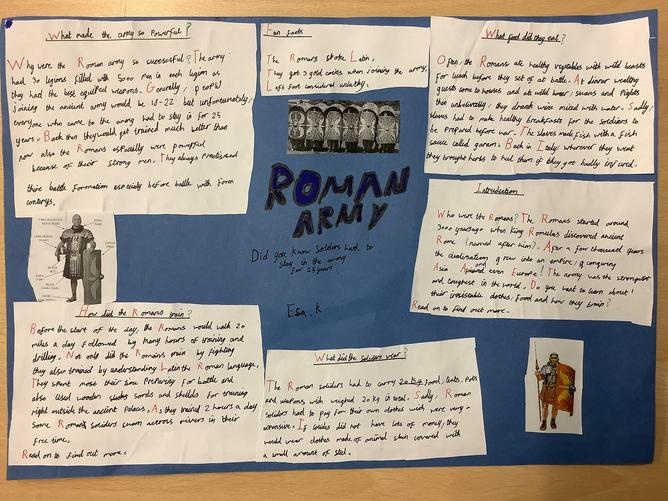 What made the army so Powerful?
Why were the Roman army so successful? The army
had 30 legions filled with 5000 men in each legion as
they had the best equited weapons. Generally, people
joining the ancient army would be 18-22 but unfortunately,
everyone who came to the army had to stay in for 25
years. Back then they would get trained much better than
now also the Romans especially were powerful
because of their strong men. They always practised
thire battle formation especially before battle with foren
contorys.
How did the Romans train?
Before the start of the day, the Romans would walk 20
miles a day followed by many hours of training and
drilling. Not only did the Romains train by fighting
they also trained by understanding Latin the Roman language.
They spent most their time Preparing for battle and
also used wooden sords and sheilds for training
right outside the ancient Palaces. As they trained 2 hours a day
Some Roman soldiers swam accross rivers in their
free time.
Read on to find out more.
Fun Facts
The Romans spoke Latin,
They got 3 gold coines when joining the army,
Left foot considerd unlucky.
ROMAN
ARMY
Did you know Soldiers had to
stay in the army
for 25 years.
Esa.K
What did the Soldiers wear?
The Roman soldiers had to carry food, tents, Pots
and weapons with weighed 20 Kg in total. Sadly, Roman
Soldiers had to pay for their own clothes witch were very
If did not have lots of money, they
would wear clothes made of animal skin covered with
a small amount of stel.
What food did they eat?
Often, the Romans ate healthy vegetables with wild beasts
for lunch before they set of at battle. At dinner wealthy
guests come to houses and ate wild boar, swans and Pigeons
then unbeliverlly, they drank wine mixed with water. Sadly,
slaves had to make healthy breakfasts for the Soldiers to
be Prepared before war. The slaves made fish with a fish
sauce called garam. Back in Italy wherever they went
they brought herbs to heal them if they got badly injured.
Introduction
Who were the Romans? The Romans started around
3000 years ago when King Romulas discovered ancient
Rome (named after him). After a few thousand years
the civilisation grew into an empire, conquering
Asia and even Europe! The army was the strongest
and toughest in the world. Do you want to learn about
their clothes, food and how they train?
Read on to find out more.